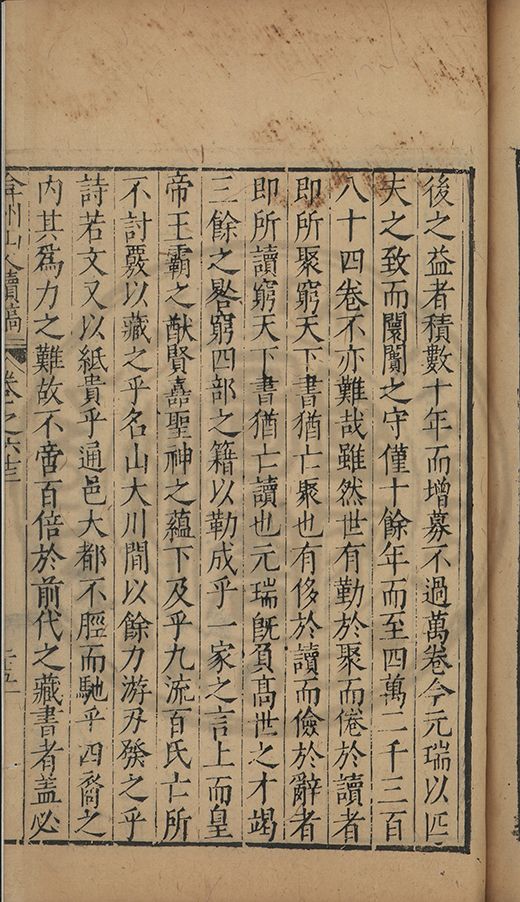 後之益者積數十年而增募不過萬卷今元瑞以匹
夫之致而闤闠之守僅十餘年而至四萬二千三百
八十四卷不亦難哉雖然世有勤於聚而倦於讀者
即所聚窮天下書猶亡聚也有侈於讀而儉於辭者
即所讀窮天下書猶亡讀也元瑞旣負髙世之才竭
三餘之晷窮四部之籍以勒成乎一家之言上而皇
帝王霸之猷賢嚞聖神之蘊下及乎九流百氏亡所
不討覈以藏之乎名山大川間以餘力游刃發之乎
詩若文又以紙貴乎通邑大都不脛而馳乎四裔之
内其爲力之難故不啻百倍於前代之藏書者盖必
弇州山人續稿 卷之六十三 二十五